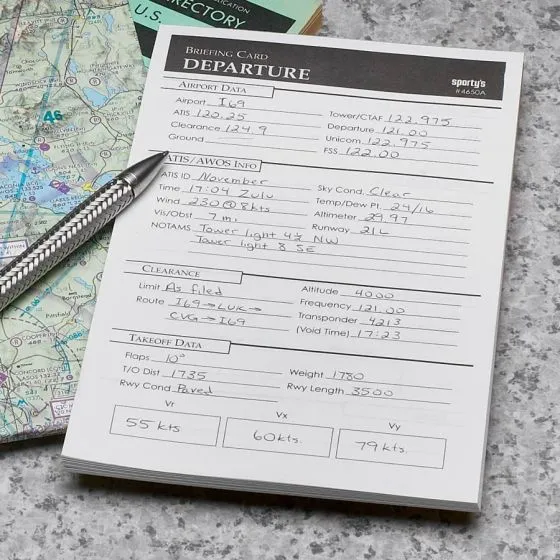 U.S.
DIRECTORY
BRIEFING CARD
DEPARTURE
sporty's
#4650A
AIRPORT DATA
Airport I69
Tower/CTAF 122.975
ATIS 120.25
Departure 121.00
Clearance 124.9
Unicom 122.975
Ground
FSS 122.00
ATIS/AWOS INFO
ATIS ID November
Sky Cond. Clear
Time 17:04 Zulu
Temp/Dew Pt. 24/16
Wind 230@8kts
Altimeter 29.97
Vis/Obst 7 mi
Runway 21L
NOTAMS Tower light 4½ NW
Tower light 8 SE
CLEARANCE
Limit As filed
Altitude 4000
Route I69→LUK→
Frequency 121.00
CVG→I69
Transponder 4213
(Void Time) 17:23
TAKEOFF DATA
Flaps 10°
Weight 1780
T/O Dist 1735
Rwy Length 3500
Rwy Cond Paved
Vr
Vx
Vy
55 kts
60kts.
79 kts.